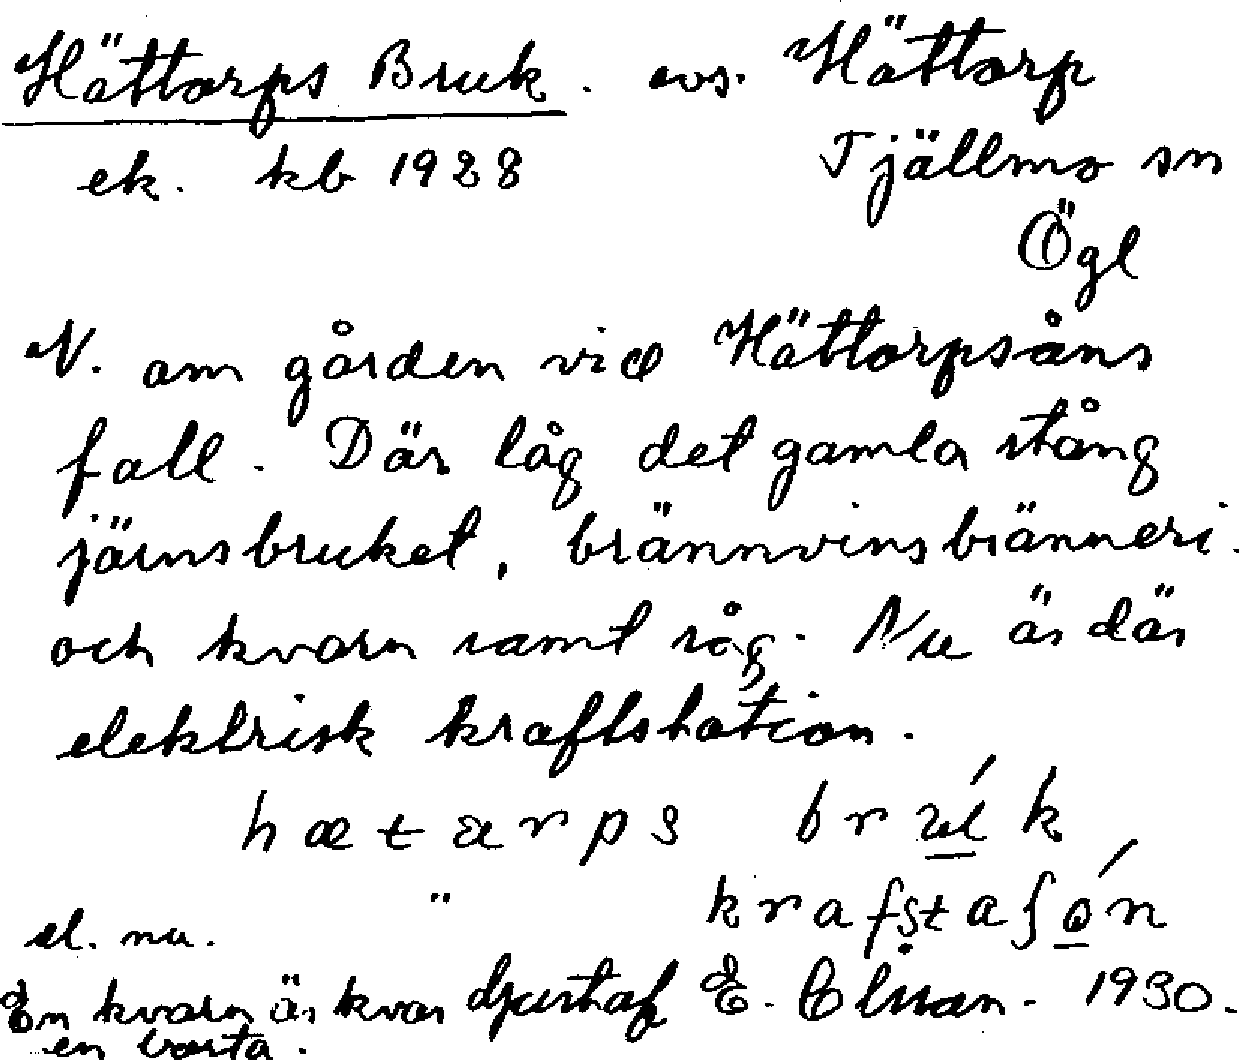 Hättorps Bruk. avs. Hättorp
ek. kb 1928 Tjällmo sn
Ögl
N. om gården vid Hättorpsåns
fall. Där låg det gamla stång
järnsbruket, brännvinsbränneri.
och kvarn samt såg. Nu är där
elektrisk kraftstation.
hætarps brúk
el. nu. " krafstaʃón
En kvarn är kvar Gustaf E. 1930.
en borta.